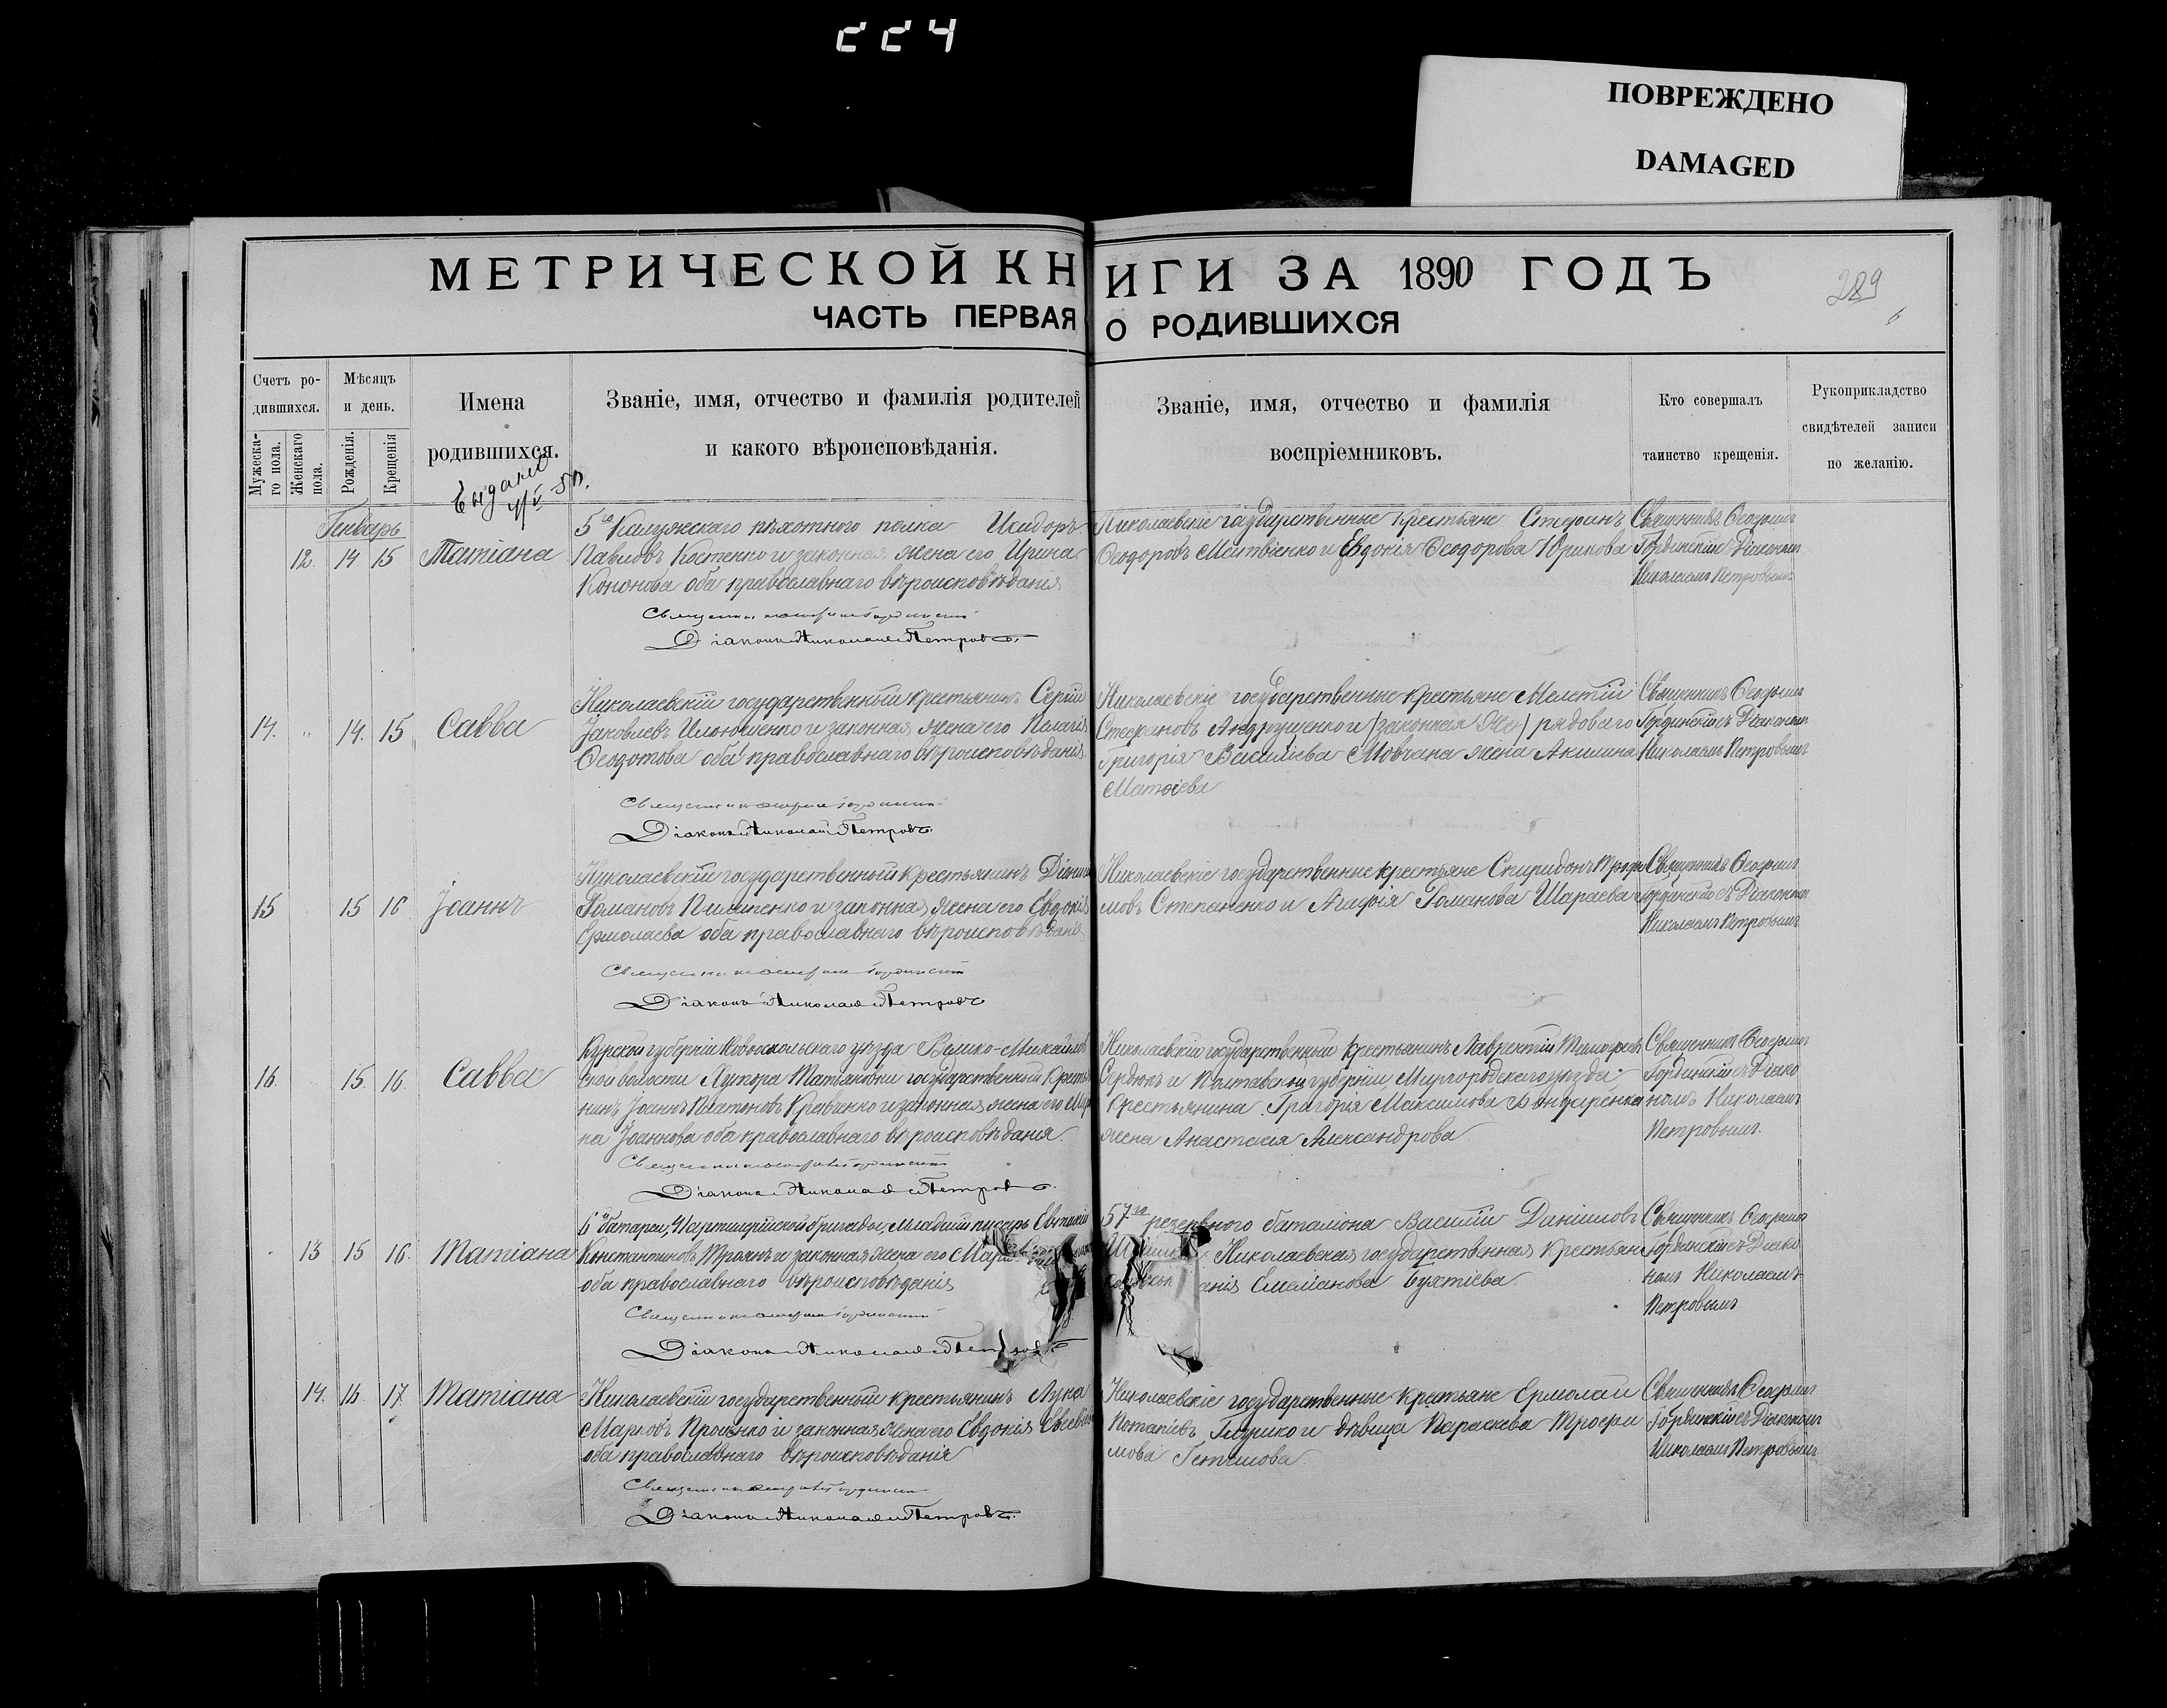 224
ПОВРЕЖДЕНО
DAMAGED
МЕТРИЧЕСКОЙ КНИГИ ЗА 1890 ГОДЪ
ЧАСТЬ ПЕРВАЯ О РОДИВШИХСЯ
289
Счетъ родившихся.
Мужескаго пола.
Женскаго пола.
Мѣсяцъ и день.
Рожденія.
Крещенія
Имена
родившихся.
Званіе, имя, отчество и фамилія родителей
и какого вѣроисповѣданія.
Званіе, имя, отчество и фамилія
воспріемниковъ.
Кто совершалъ
таинство крещенія.
Рукоприкладство
свидѣтелей записи
по желанію.
Генварь
12. 14 15 Татіана
5го Калужскаго пѣхотнаго полка Исидоръ
Павловъ Костенко и законная жена его Ирина
Кононова оба православнаго вѣроисповѣданія
Діаконъ Николай Петровъ
Николаевскіе государственные крестьяне Стефанъ
Ѳеодоровъ Матвіенко и Евдокія Ѳеодорова Юрикова
Священникъ Ѳеофилъ
Гординскій съ Діакономъ
Николаемъ Петровымъ
14. 14. 15 Савва
Николаевскій государственный крестьянинъ Сергій
Іаковлевъ Ильюшенко и законная жена его Пелагія
Ѳеодотова оба православнаго вѣроисповѣданія
Діаконъ Николай Петровъ
Николаевскіе государственные крестьяне Мелетій
Стефановъ Андрущенко и /законная Же/ рядоваго
Григорія Василіева Мовчана жена Акилина
Матѳіева
Священникъ Ѳеофилъ
Гординскій съ Діакономъ
Николаемъ Петровымъ
15 15 16 Іоаннъ
Николаевскій государственный крестьянинъ
Романовъ Пилипенко и законная жена его Евдокія
Ермолаева оба православнаго вѣроисповѣданія
Діаконъ Николай Петровъ
Николаевскіе государственные крестьяне Спиридонъ
Степаненко и Агафія Романова Шараева
Священникъ Ѳеофилъ
Гординскій съ Діакономъ
Николаемъ Петровымъ
16. 15. 16. Савва
Курской губерніи Новооскольскаго уѣзда Велико-Михайлов
ской волости Хутора Татьяновки государственный кресть
нинъ Іоаннъ Платоновъ Кравченко и законная жена его
на Іоаннова оба православнаго вѣроисповѣданія
Діаконъ Николай Петровъ
Николаевскій государственный крестьянинъ Лаврентій
Сердюкъ и Полтавской губерніи Миргородскаго уѣзда
крестьянина Григорія Максимова Бондаренка
жена Анастасія Александрова
Священникъ Ѳеофилъ
Гординскій съ Діако
номъ Николаемъ
Петровымъ.
13 15 16. Татіана
6й батареи, 4 Артиллерійской бригады, младшій писарь
Константиновъ Троянъ и законная жена его
оба православнаго вѣроисповѣданія
Діаконъ Николай Петровъ
57го резервного баталіона Василій Даніиловъ
Николаевская государственная крестьян
Емеліанова Бухтіева
Священникъ Ѳеофилъ
Гординскій съ Діако
номъ Николаемъ
Петровымъ
14. 16. 17 Татіана
Николаевскій государственный крестьянинъ Лука
Марковъ Проценко и законная жена его Евдокія
оба православнаго вѣроисповѣданія
Діаконъ Николай Петровъ
Николаевскіе государственные крестьяне Ермолай
Потапіевъ и дѣвица Параскева Трофи
мова
Священникъ Ѳеофилъ
Гординскій съ Діакономъ
Николаемъ Петровымъ